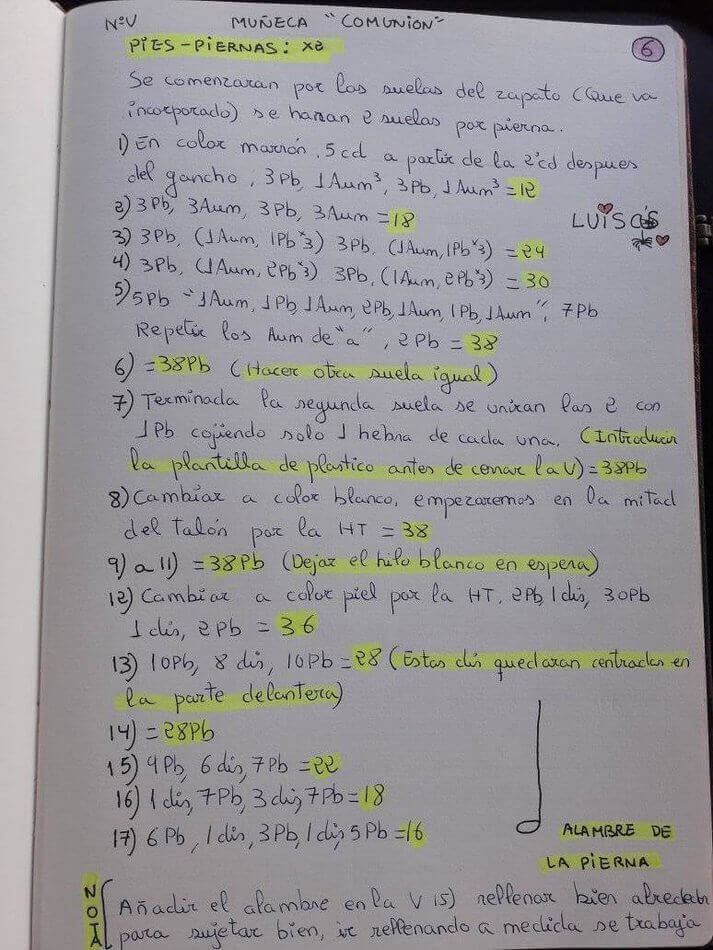 NºV MUÑECA "COMUNION"
PIES-PIERNAS: X2
6
Se comenzaran por las suelas del zapato (Que va
incorporado) se haran 2 suelas por pierna.
1) En color marrón, 5cd a partir de la 2ºcd despues
del gancho, 3Pb, 1Aum³, 3Pb, 1Aum³=12
2) 3Pb, 3Aum, 3Pb, 3Aum =18
LUISA'S
3) 3Pb, (1Aum, 1Pb*3) 3Pb, (1Aum, 1Pb*3) = 24
4) 3Pb, (1Aum, 2Pb*3) 3Pb, (1Aum, 2Pb*3) = 30
5) 5Pb "1Aum, 1Pb, 1Aum, 2Pb, 1Aum, 1Pb, 1Aum", 7Pb
Repetir los Aum de "a", 2Pb = 38
6) =38Pb (Hacer otra suela igual)
7) Terminada la segunda suela se uniran las 2 con
1Pb cojiendo solo 1 hebra de cada una. (Introducir
la plantilla de plastico antes de cerrar la V)=38Pb
8) Cambiar a color blanco, empezaremos en la mitad
del talón por la HT = 38
9) a 11) =38Pb (Dejar el hilo blanco en espera)
12) Cambiar a color piel por la HT. 2Pb, 1dis, 30Pb
1dis, 2Pb = 36
13) 10Pb, 8 dis, 10Pb =28 (Estas dis quedaran centradas en
la parte delantera)
14) =28Pb
15) 9Pb, 6 dis, 7Pb =22
16) 1dis, 7Pb, 3dis, 7Pb=18
17) 6Pb, 1dis, 3Pb, 1dis, 5Pb =16
ALAMBRE DE
LA PIERNA
NOTA
Añadir el alambre en la V 15) rellenar bien alrededor
para sujetar bien, ir rellenando a medida se trabaja